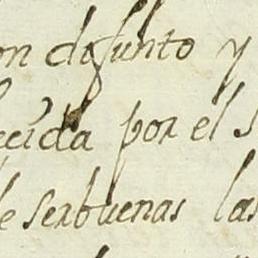 on difunto y
ecida por el S
de ser buenas las